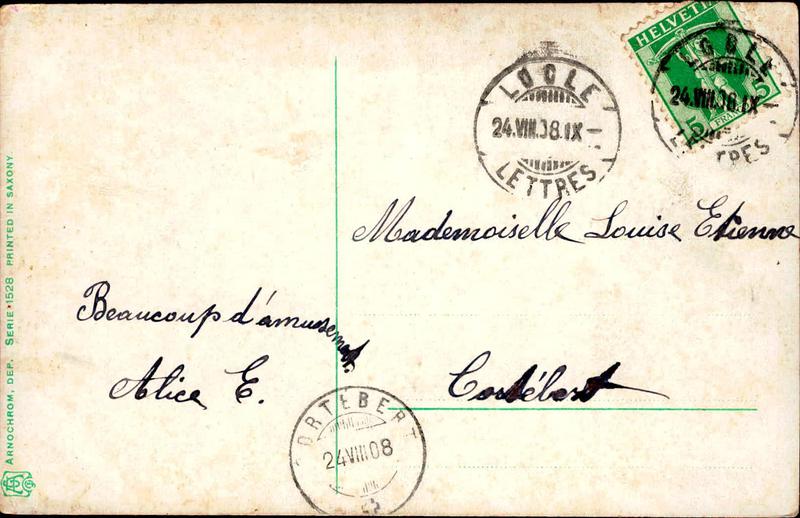 HELVETIA
5 5
FRANCO
LOCLE
24.VIII.08.IX
LETTRES
LOCLE
24.VIII.08.IX
LETTRES
Mademoiselle Louise Etienne
Cortébert
Beaucoup d'amusement.
Alice E.
CORTÉBERT
24 VIII 08
ARNOCHROM, DEP. SERIE·1528 PRINTED IN SAXONY